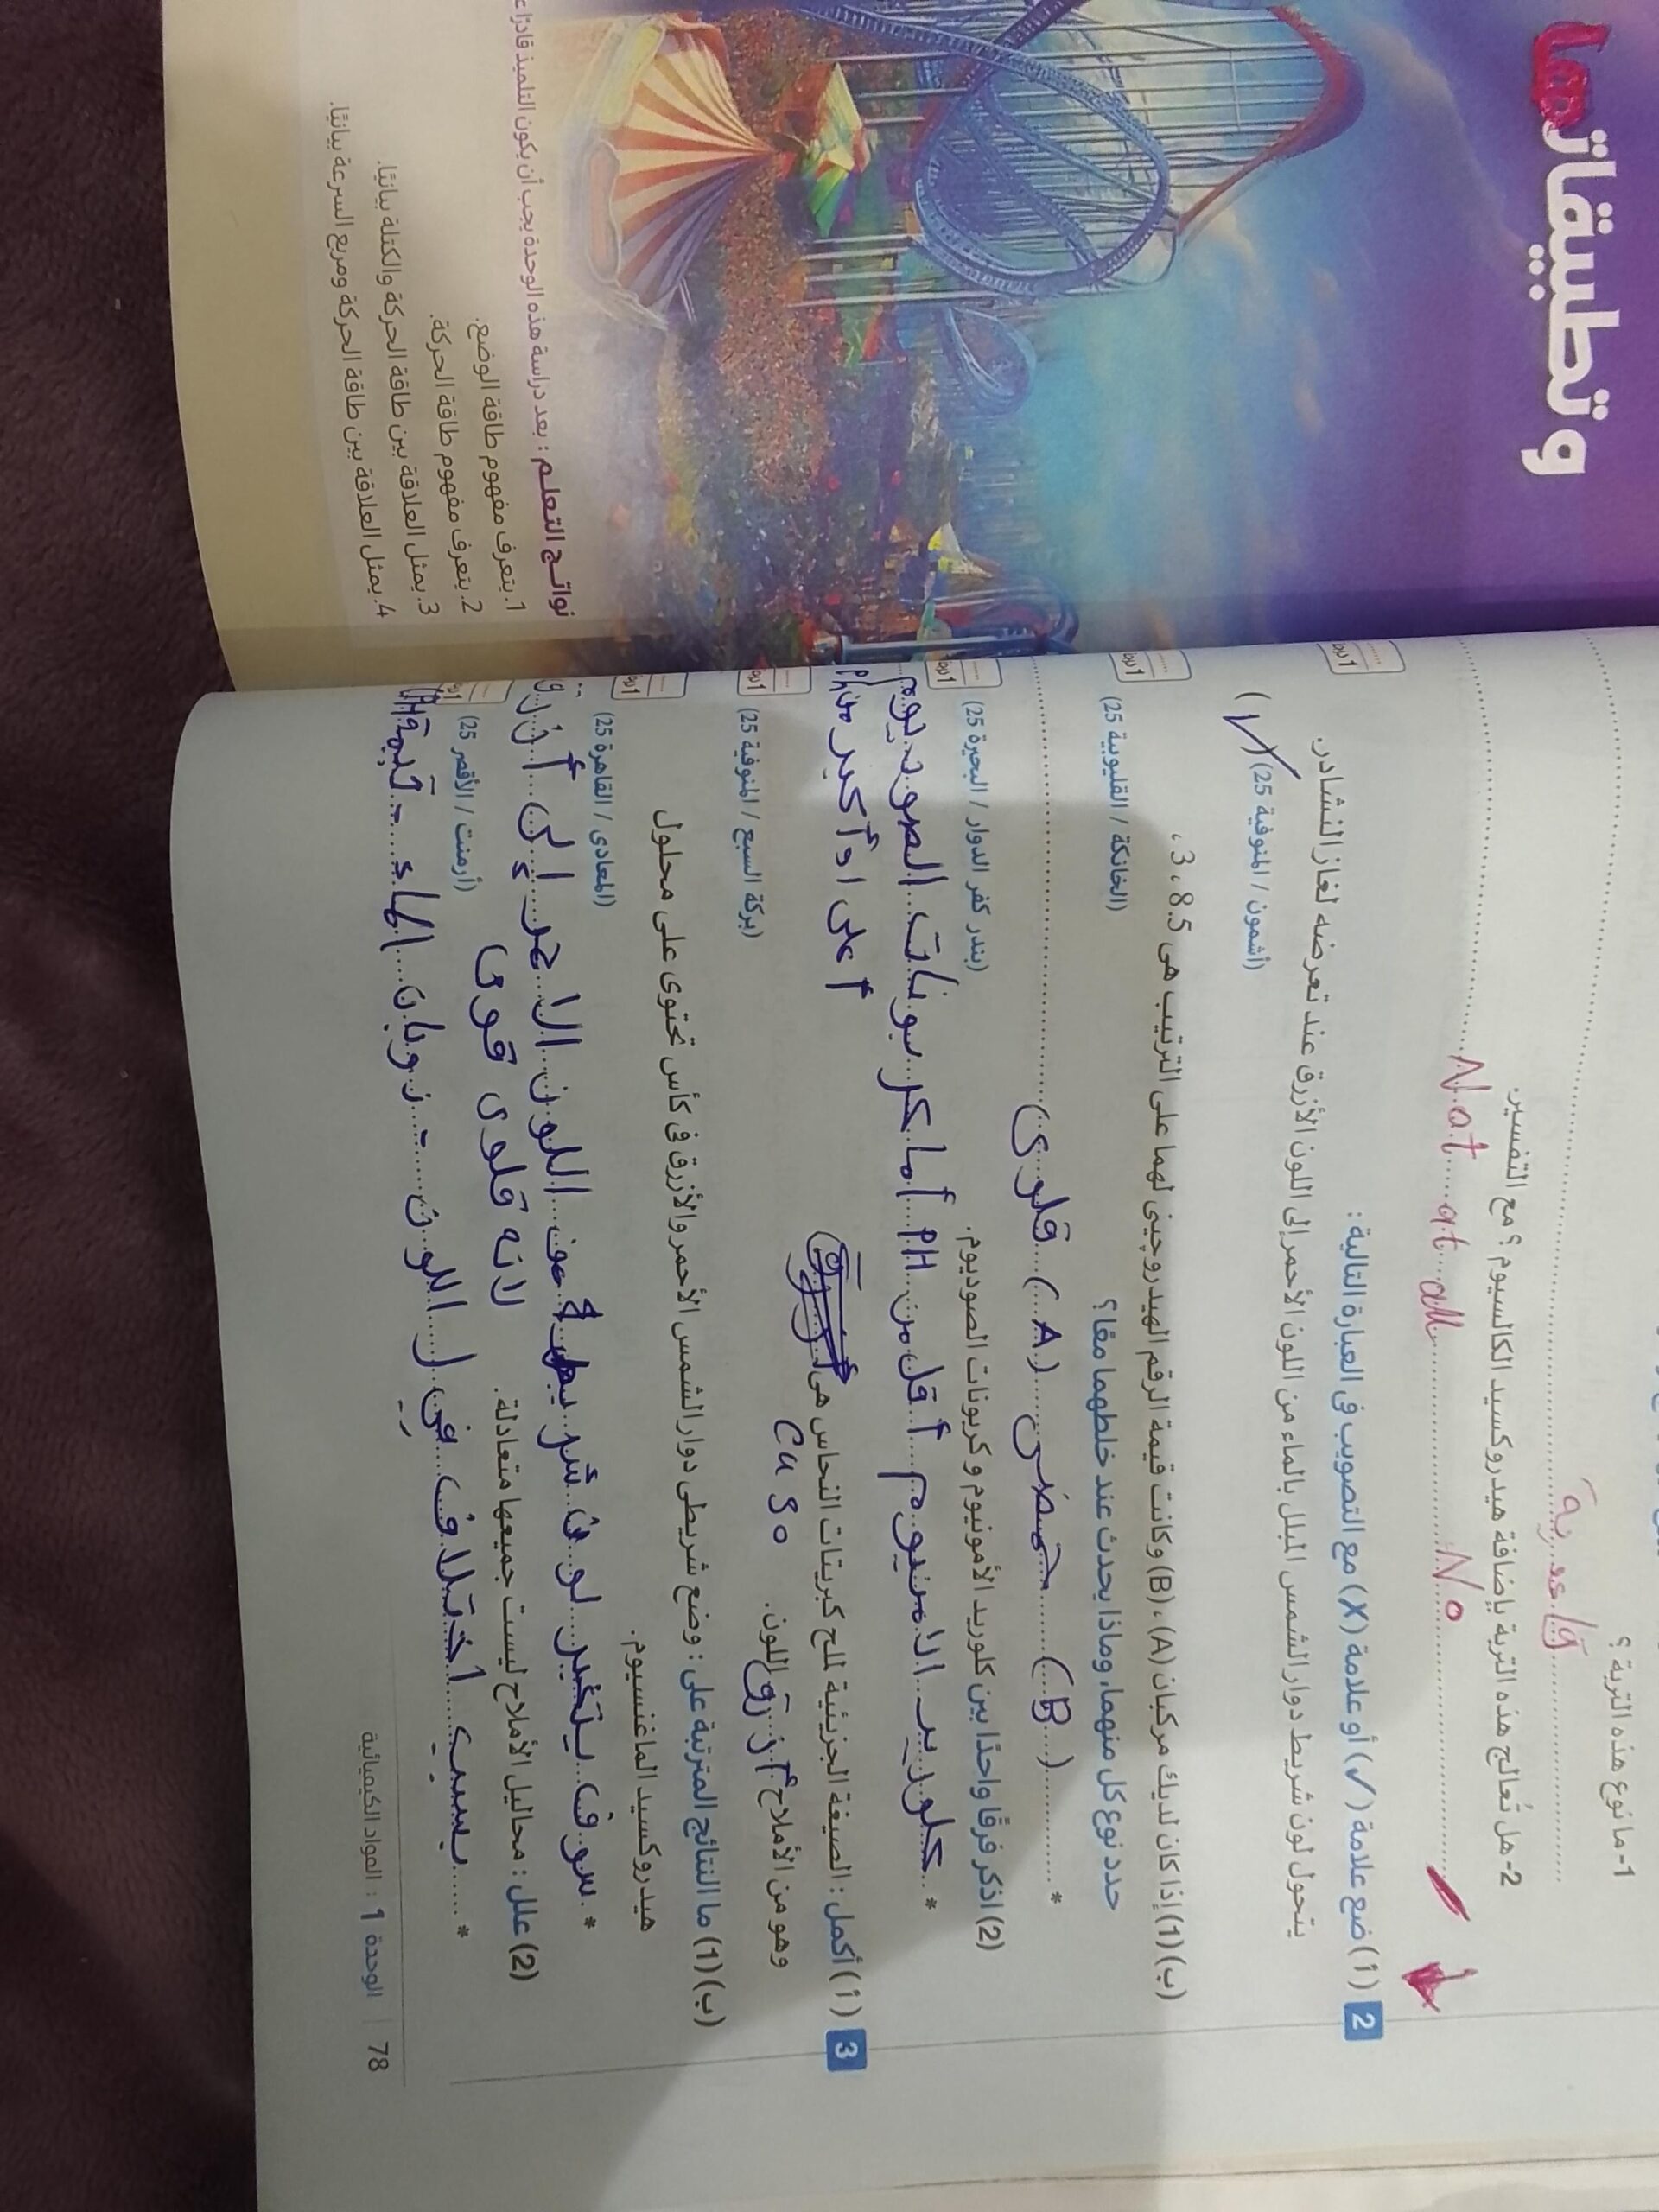 وتطبيقاتها
نواتج التعلم : بعد دراسة هذه الوحدة يجب أن يكون التلميذ قادرًا
1. يتعرف مفهوم طاقة الوضع.
2. يتعرف مفهوم طاقة الحركة.
3. يمثل العلاقة بين طاقة الحركة والكتلة بيانيًا.
4. يمثل العلاقة بين طاقة الحركة ومربع السرعة بيانيًا.
1- ما نوع هذه التربة ؟
قاعدية
2- هل تُعالج هذه التربة بإضافة هيدروكسيد الكالسيوم ؟ مع التفسير.
No Not at all
2 (أ) ضع علامة (✓) أو علامة (X) مع التصويب فى العبارة التالية :
يتحول لون شريط دوار الشمس المبلل بالماء من اللون الأحمر إلى اللون الأزرق عند تعرضه لغاز النشادر.
(أشمون / المنوفية 25) (✓)
(ب) (1) إذا كان لديك مركبان (A) ، (B) وكانت قيمة الرقم الهيدروچينى لهما على الترتيب هى 8.5 ، 3 ،
حدد نوع كل منهما، وماذا يحدث عند خلطهما معًا ؟ (الخانكة / القليوبية 25)
* (B) حمضى (A) قلوى
(2) اذكر فرقًا واحدًا بين كلوريد الأمونيوم وكربونات الصوديوم. (بندر كفر الدوار / البحيرة 25)
* كلوريد الامنيوم أقل من PH أما كربونات الصوديوم
أعلى أو أكبر من PH
3 (أ) أكمل : الصيغة الجزيئية لملح كبريتات النحاس هى (بركة السبع / المنوفية 25)
Cu So
وهو من الأملاح أزرق اللون.
(ب) (1) ما النتائج المترتبة على : وضع شريطى دوار الشمس الأحمر والأزرق فى كأس تحتوى على محلول
هيدروكسيد الماغنسيوم. (المعادى / القاهرة 25)
* سوف يتغير لون شريط من اللون الاحمر إلى أزرق
لانه قلوى قوى
(2) علل : محاليل الأملاح ليست جميعها متعادلة. (أرمنت / الأقصر 25)
* بسبب أختلاف فى اللون - ذوبان الماء - قيمة PH
78 | الوحدة 1 : المواد الكيميائية